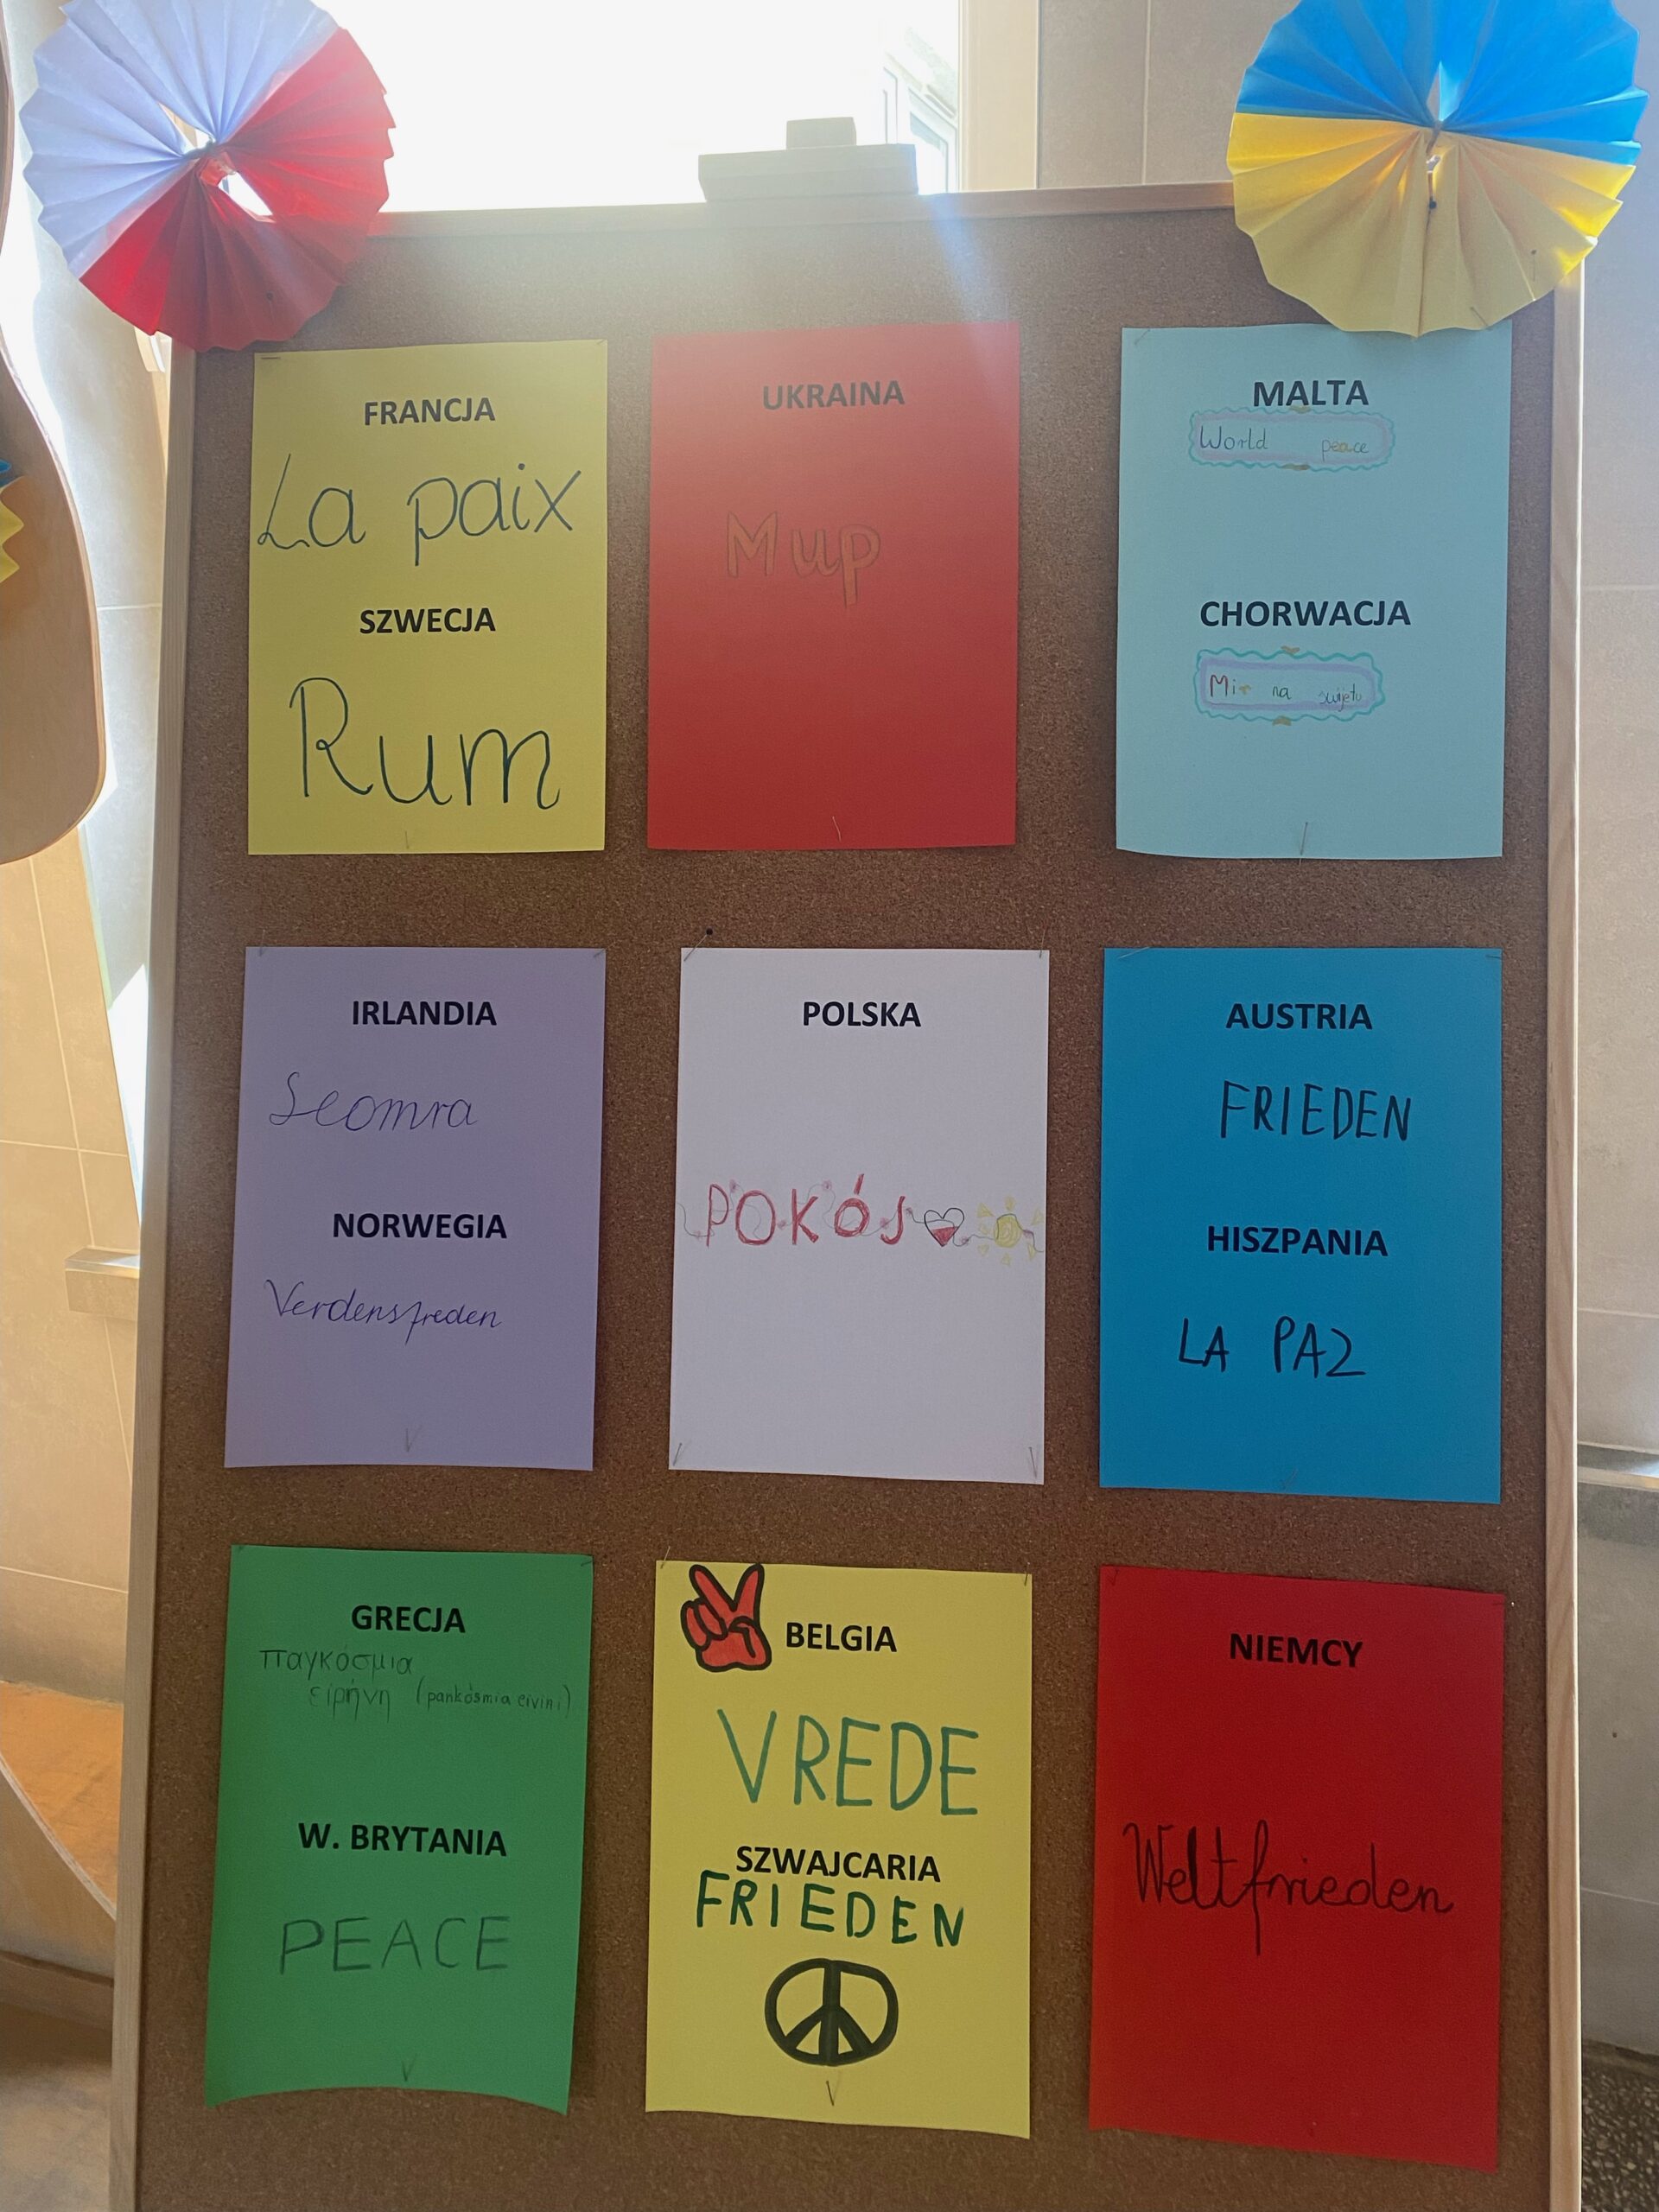 FRANCJA
La paix
SZWECJA
Rum
UKRAINA
Мир
MALTA
World peace
CHORWACJA
Mir na svijetu
IRLANDIA
Seomra
NORWEGIA
Verdensfreden
POLSKA
POKÓJ
AUSTRIA
FRIEDEN
HISZPANIA
LA PAZ
GRECJA
παγκόσμια
ειρήνη (pankósmia eivini)
W. BRYTANIA
PEACE
BELGIA
VREDE
SZWAJCARIA
FRIEDEN
NIEMCY
Weltfrieden